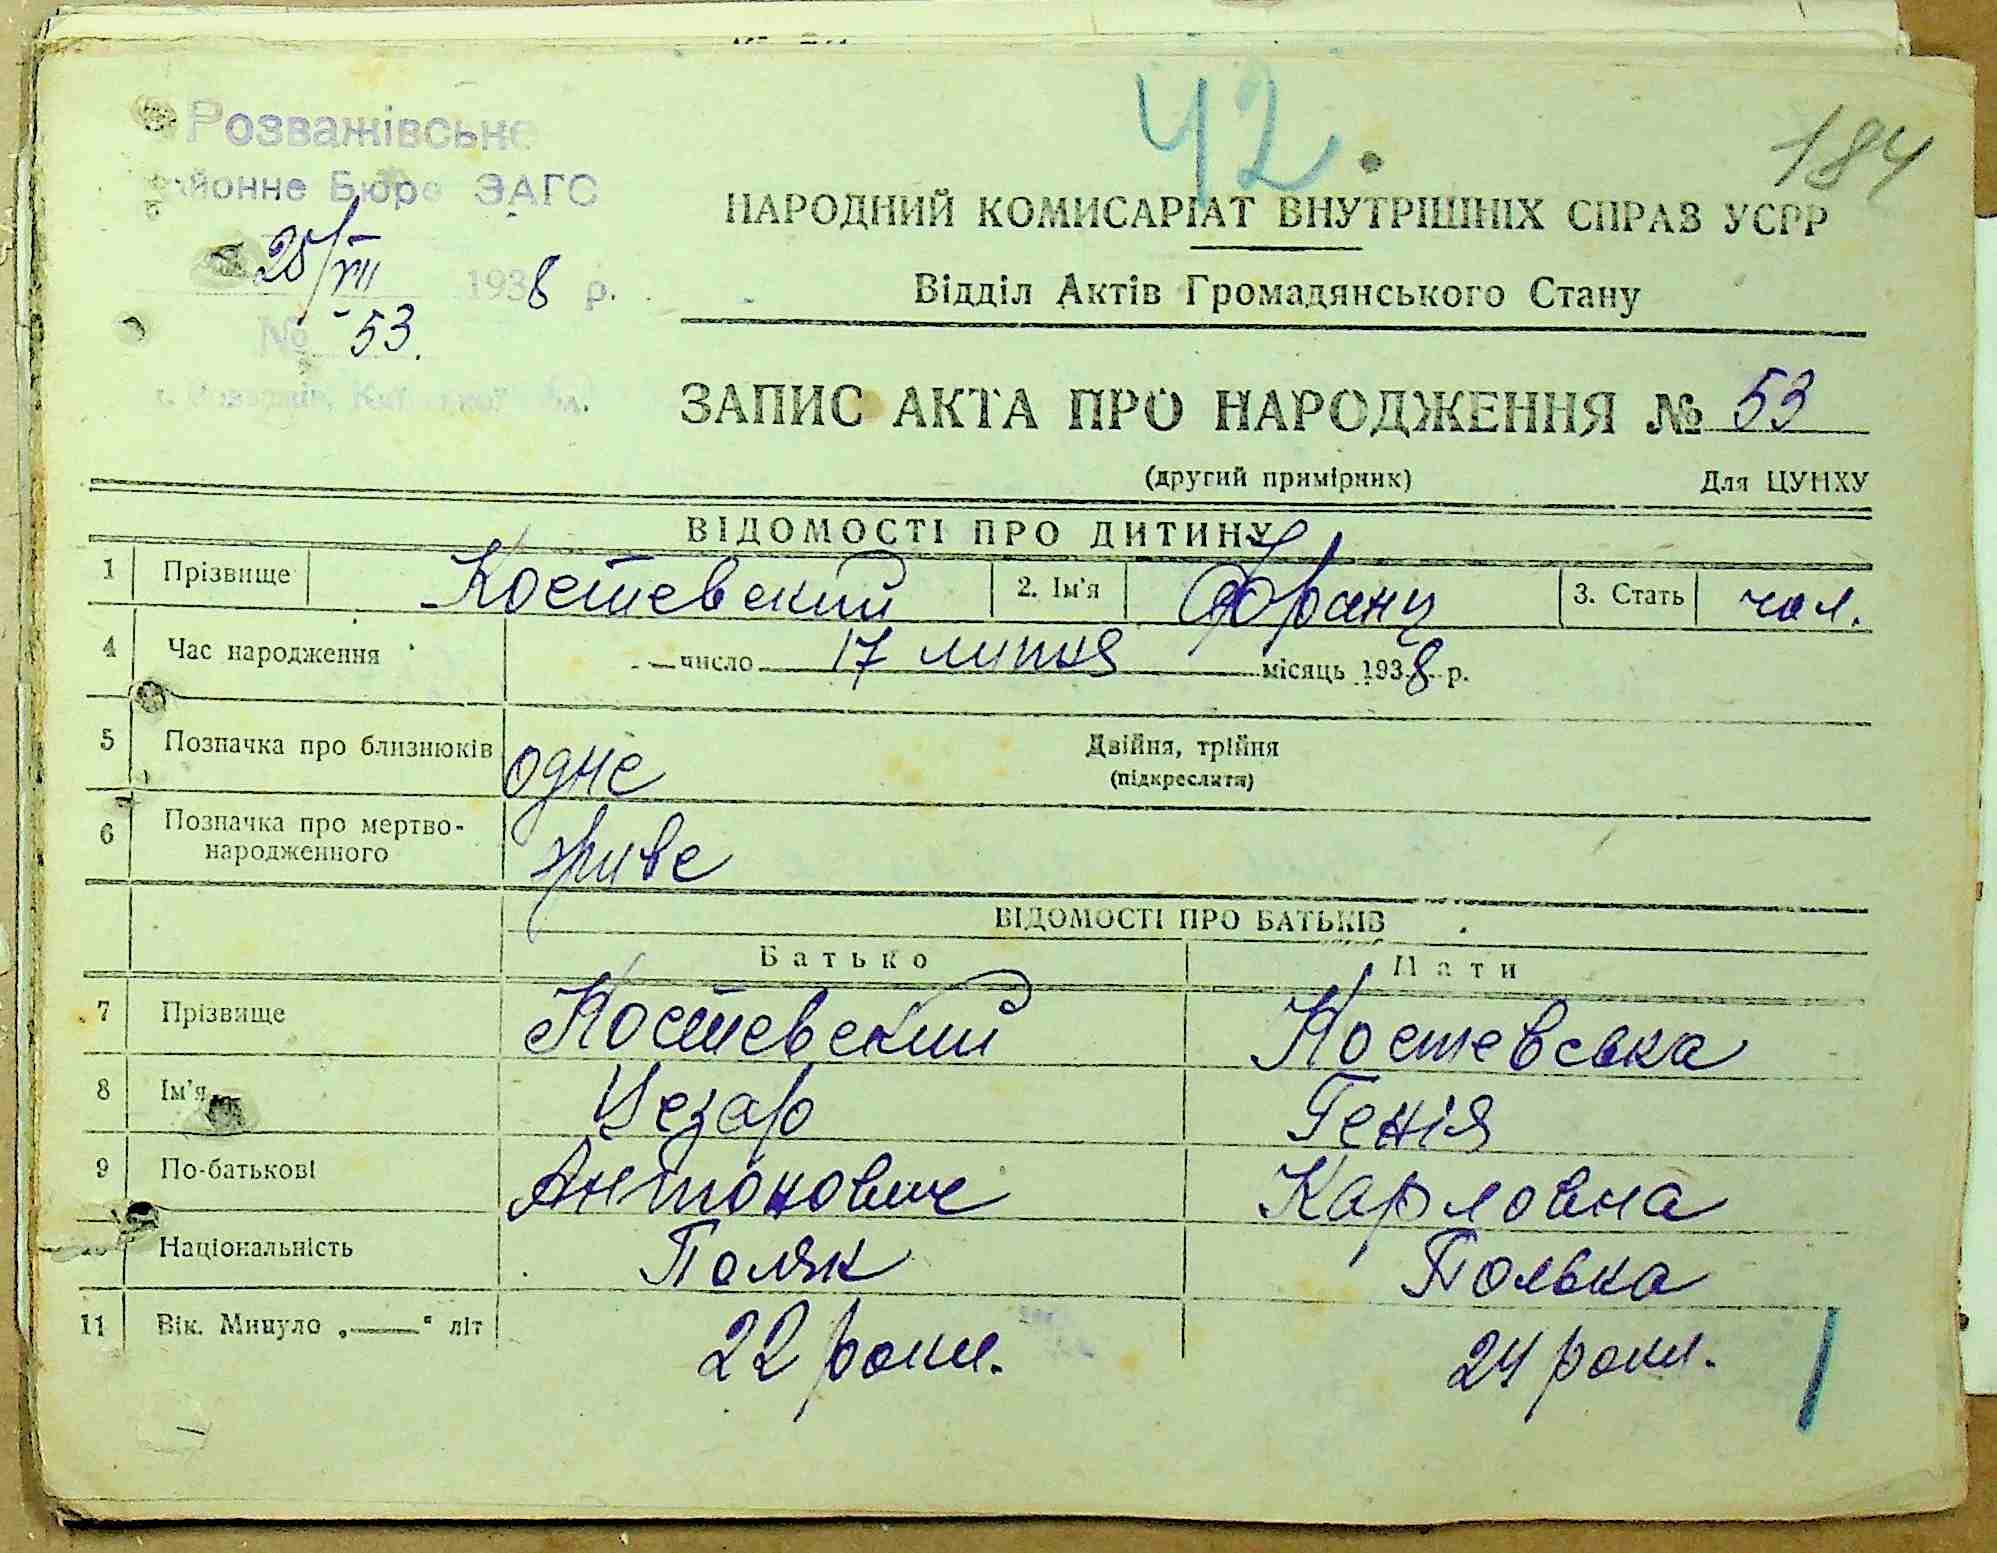 42.
184
Розважівське
районне Бюро ЗАГС
25/VII 1938 р.
№ 53.
НАРОДНИЙ КОМИСАРІАТ ВНУТРІШНІХ СПРАВ УСРР
Відділ Актів Громадянського Стану
ЗАПИС АКТА ПРО НАРОДЖЕННЯ № 53
(другий примірник) Для ЦУНХУ
ВІДОМОСТІ ПРО ДИТИНУ
1 Прізвище Костевский 2. Ім'я Франц 3. Стать чол.
4 Час народження число 17 липня місяць 1938 р.
5 Позначка про близнюків одне Двійня, трійня
(підкреслити)
6 Позначка про мертво-
народженного живе
ВІДОМОСТІ ПРО БАТЬКІВ
Батько Мати
7 Прізвище Костевский Костевська
8 Ім'я Цезар Генія
9 По-батькові Антонович Карловна
10 Національність Поляк Полька
11 Вік. Минуло „—" літ 22 роки. 24 роки.